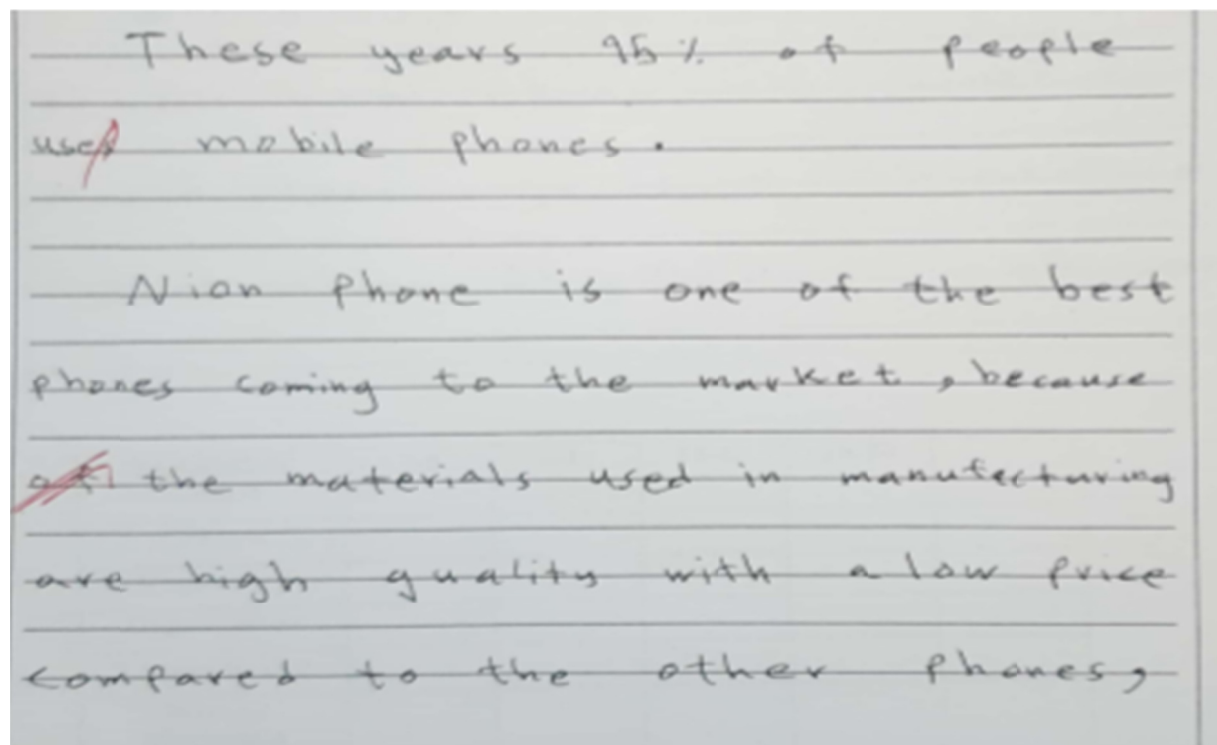 These years 95% of people
use mobile phones.
Nion Phone is one of the best
phones coming to the market, because
the materials used in manufecturing
are high quality with a low price
compared to the other phones,